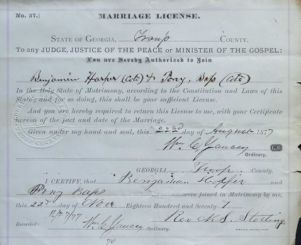 No. 37.
MARRIAGE LICENSE.
STATE OF GEORGIA, Troup COUNTY.
To any JUDGE, JUSTICE OF THE PEACE or MINISTER OF THE GOSPEL:
You are Hereby Authorized to Join
Benjamin (Col) &
In the Holy State of Matrimony, according to the Constitution and Laws of this
State; and for so doing, this shall be your sufficient License.
And you are hereby required to return this License to me, with your Certificate
hereon of the fact and date of the Marriage.
Given under my hand and seal, this 22d day of August 1877
Wm. C. Yancey
Ordinary.
GEORGIA, Troup County.
I CERTIFY, that Benjamin
and were joined in Matrimony by me,
this 22d day of Nov Eighteen Hundred and Seventy 7
Recorded
Wm. C. Yancey Rev. Sterling
Ordinary.